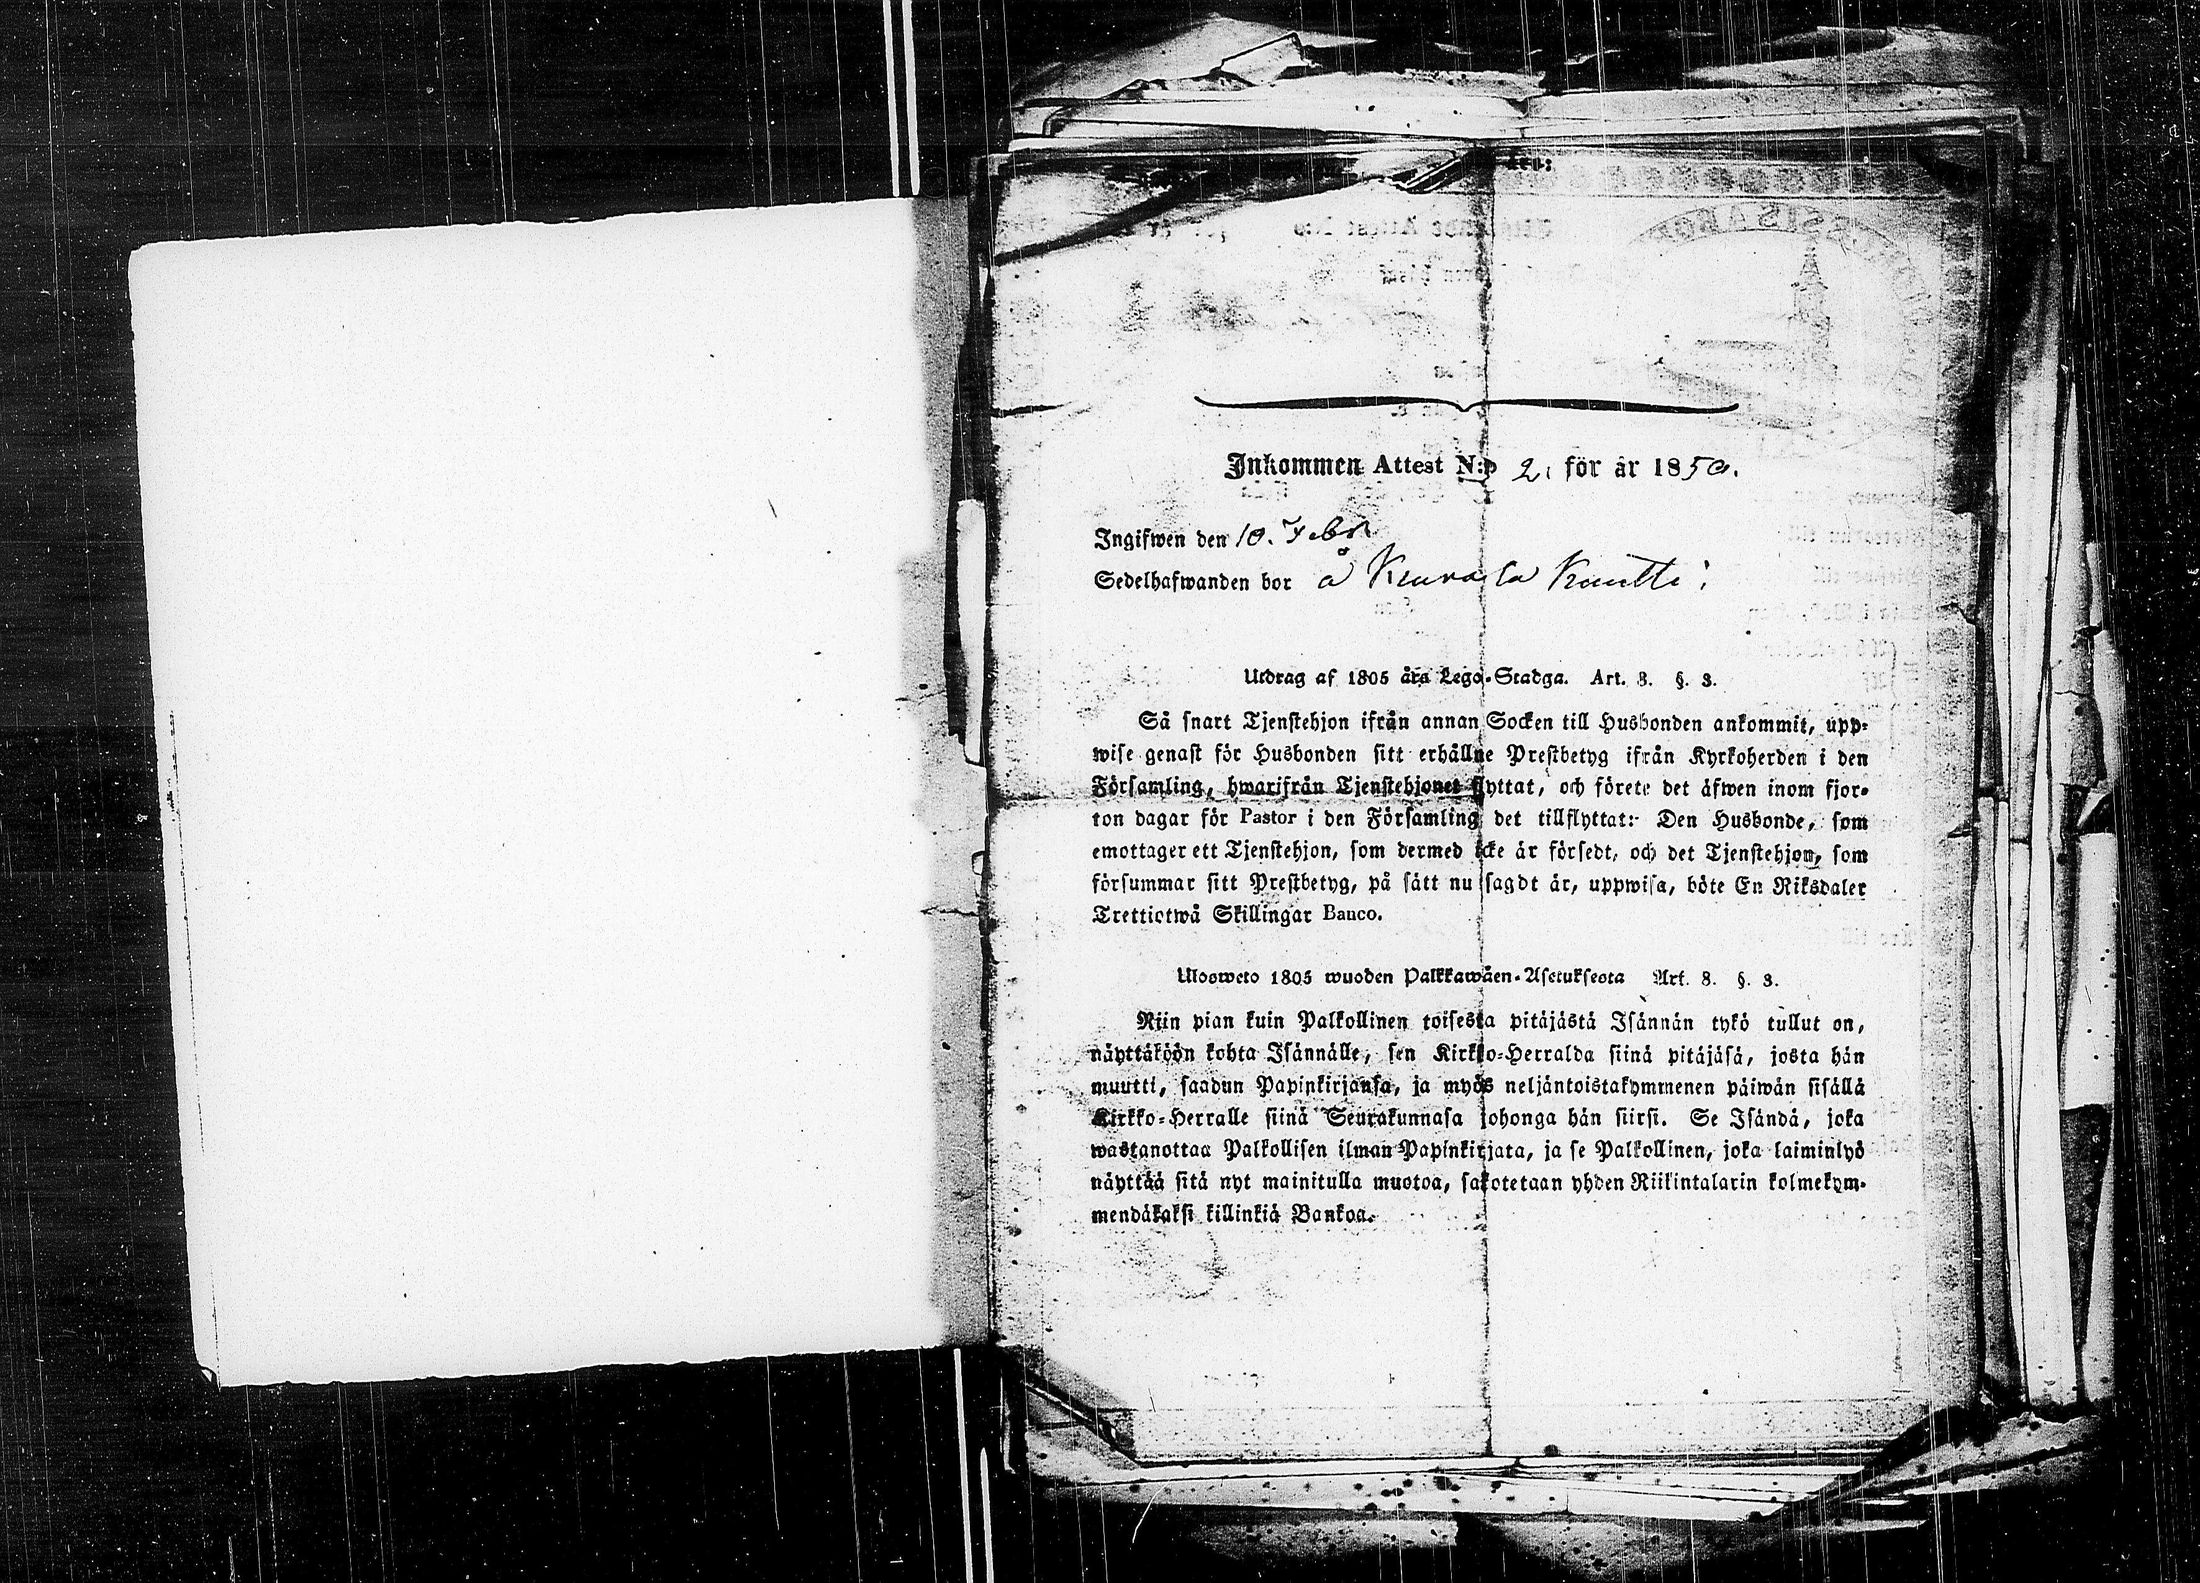 Inkommen Attest N:o 2. för år 1850.
Ingifwen den 10. Febr
Sedelhafwanden bor å Kuntti
Utdrag af 1805 års Lego-Stadga. Art. 8. §. 3.
Så snart Tjenstehjon ifrån annan Socken till Husbonden ankommit, upp-
wise genast för Husbonden sitt erhållne Prestbetyg ifrån Kyrkoherden i den
Församling, hwarifrån Tjenstehjonet flyttat, och förete det äfwen inom fjor-
ton dagar för Pastor i den Församling det tillflyttat: Den Husbonde, som
emottager ett Tjenstehjon, som dermed icke är försedt, och det Tjenstehjon, som
försummar sitt Prestbetyg, på sätt nu sagdt är, uppwisa, böte En Riksdaler
Trettiotwå Skillingar Banco.
Ulosweto 1805 wuoden Palkkawäen-Asetuksesta Art. 8. §. 3.
Niin pian kuin Palkollinen toisesta pitäjästä Isännän tykö tullut on,
näyttäköön kohta Isännälle, sen Kirkko-Herralda siinä pitäjäsä, josta hän
muutti, saadun Papinkirjansa, ja myös neljäntoistakymmenen päiwän sisällä
Kirkko-Herralle siinä Seurakunnasa johonga hän siirsi. Se Isändä, joka
wastanottaa Palkollisen ilman Papinkirjata, ja se Palkollinen, joka laiminlyö
näyttää sitä nyt mainitulla muotoa, sakotetaan yhden Riikintalarin kolmekym-
mendäkaksi killinkiä Bankoa.